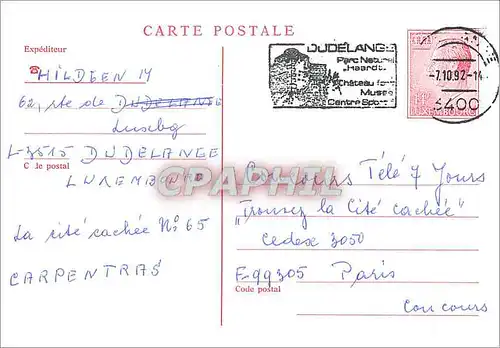 CARTE POSTALE
Expéditeur
HILDGEN M
62, rte de DUDELANGE
Luxbg
L-3515 DUDELANGE
C le postal
LUXEMBOURG
La cité cachée N° 65
CARPENTRAS
DUDELANGE
Parc Naturel
"Haardt"
Château fort
Musée
Centre Sport
-7.10.92-14
3400
LUXEMBOURG
CPAPHIL
Concours Télé 7 Jours
"Trouvez la Cité cachée"
Cedex 3050
F-99305 Paris
Code postal
Concours